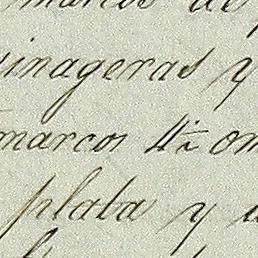 marcos de
vinageras y
marcos 4½ on
plata y u